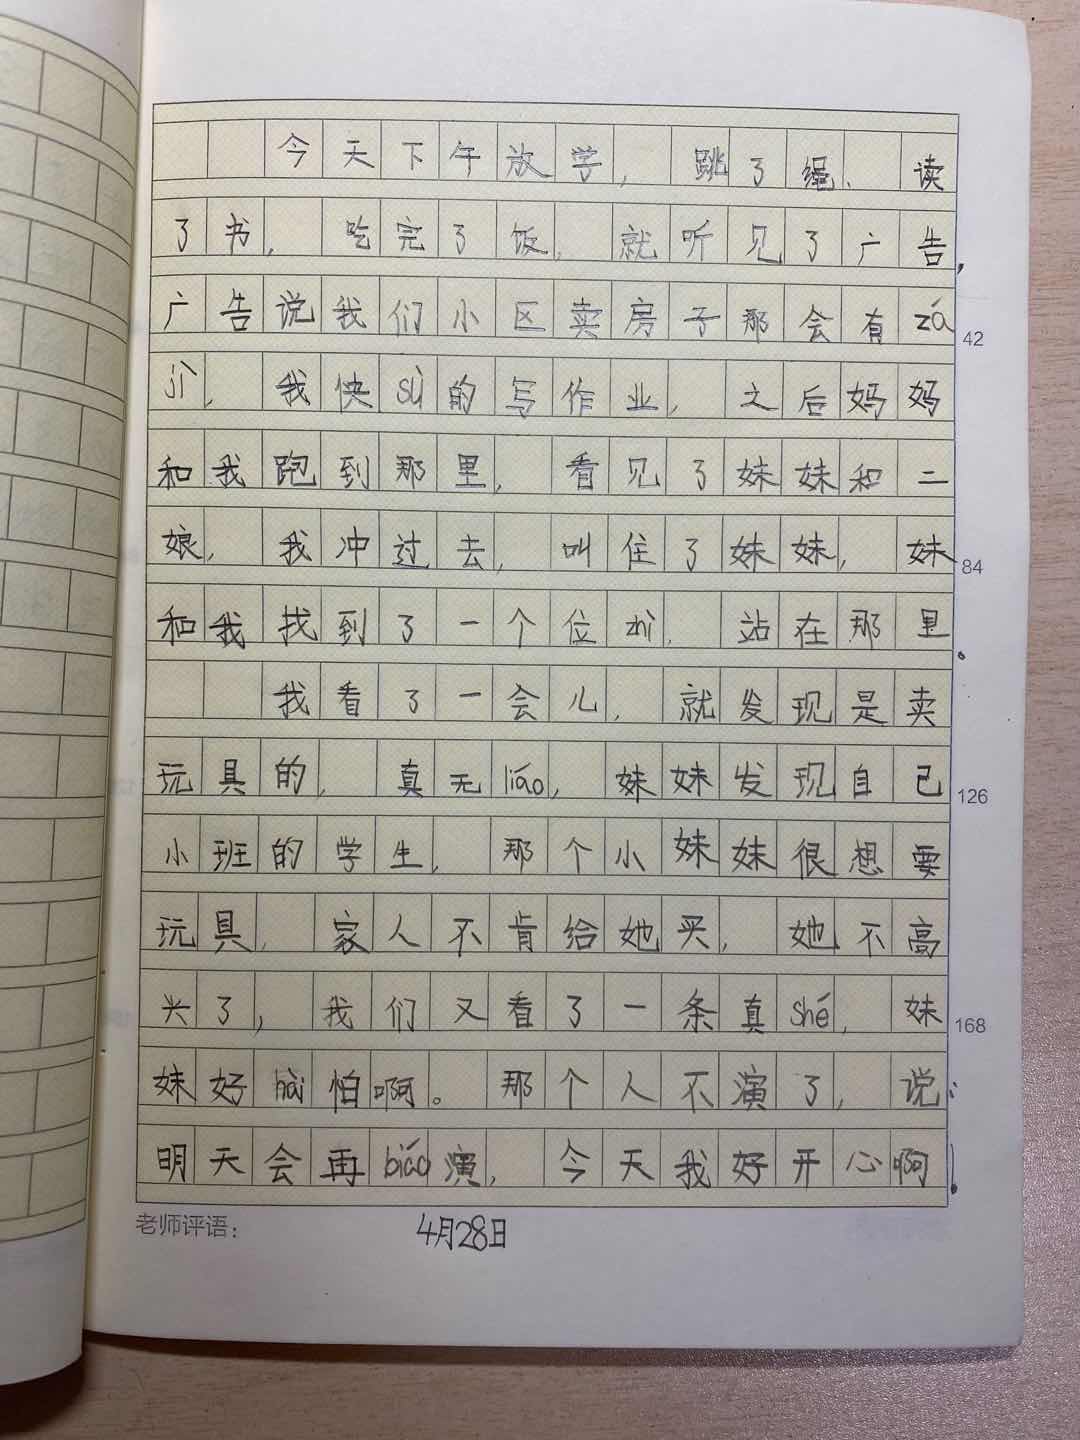 今天下午放学，跳了绳、读
了书，吃完了饭，就听见了广告，
广告说我们小区卖房子那会有zá
42
jì，我快sù的写作业，之后妈妈
和我跑到那里，看见了妹妹和二
娘，我冲过去，叫住了妹妹，妹
84
和我找到了一个位zhì，站在那里。
我看了一会儿，就发现是卖
玩具的，真无liáo，妹妹发现自己
126
小班的学生，那个小妹妹很想要
玩具，家人不肯给她买，她不高
兴了，我们又看了一条真shé，妹
168
妹好hài怕啊。那个人不演了，说：
明天会再biǎo演，今天我好开心啊！
老师评语：
4月28日